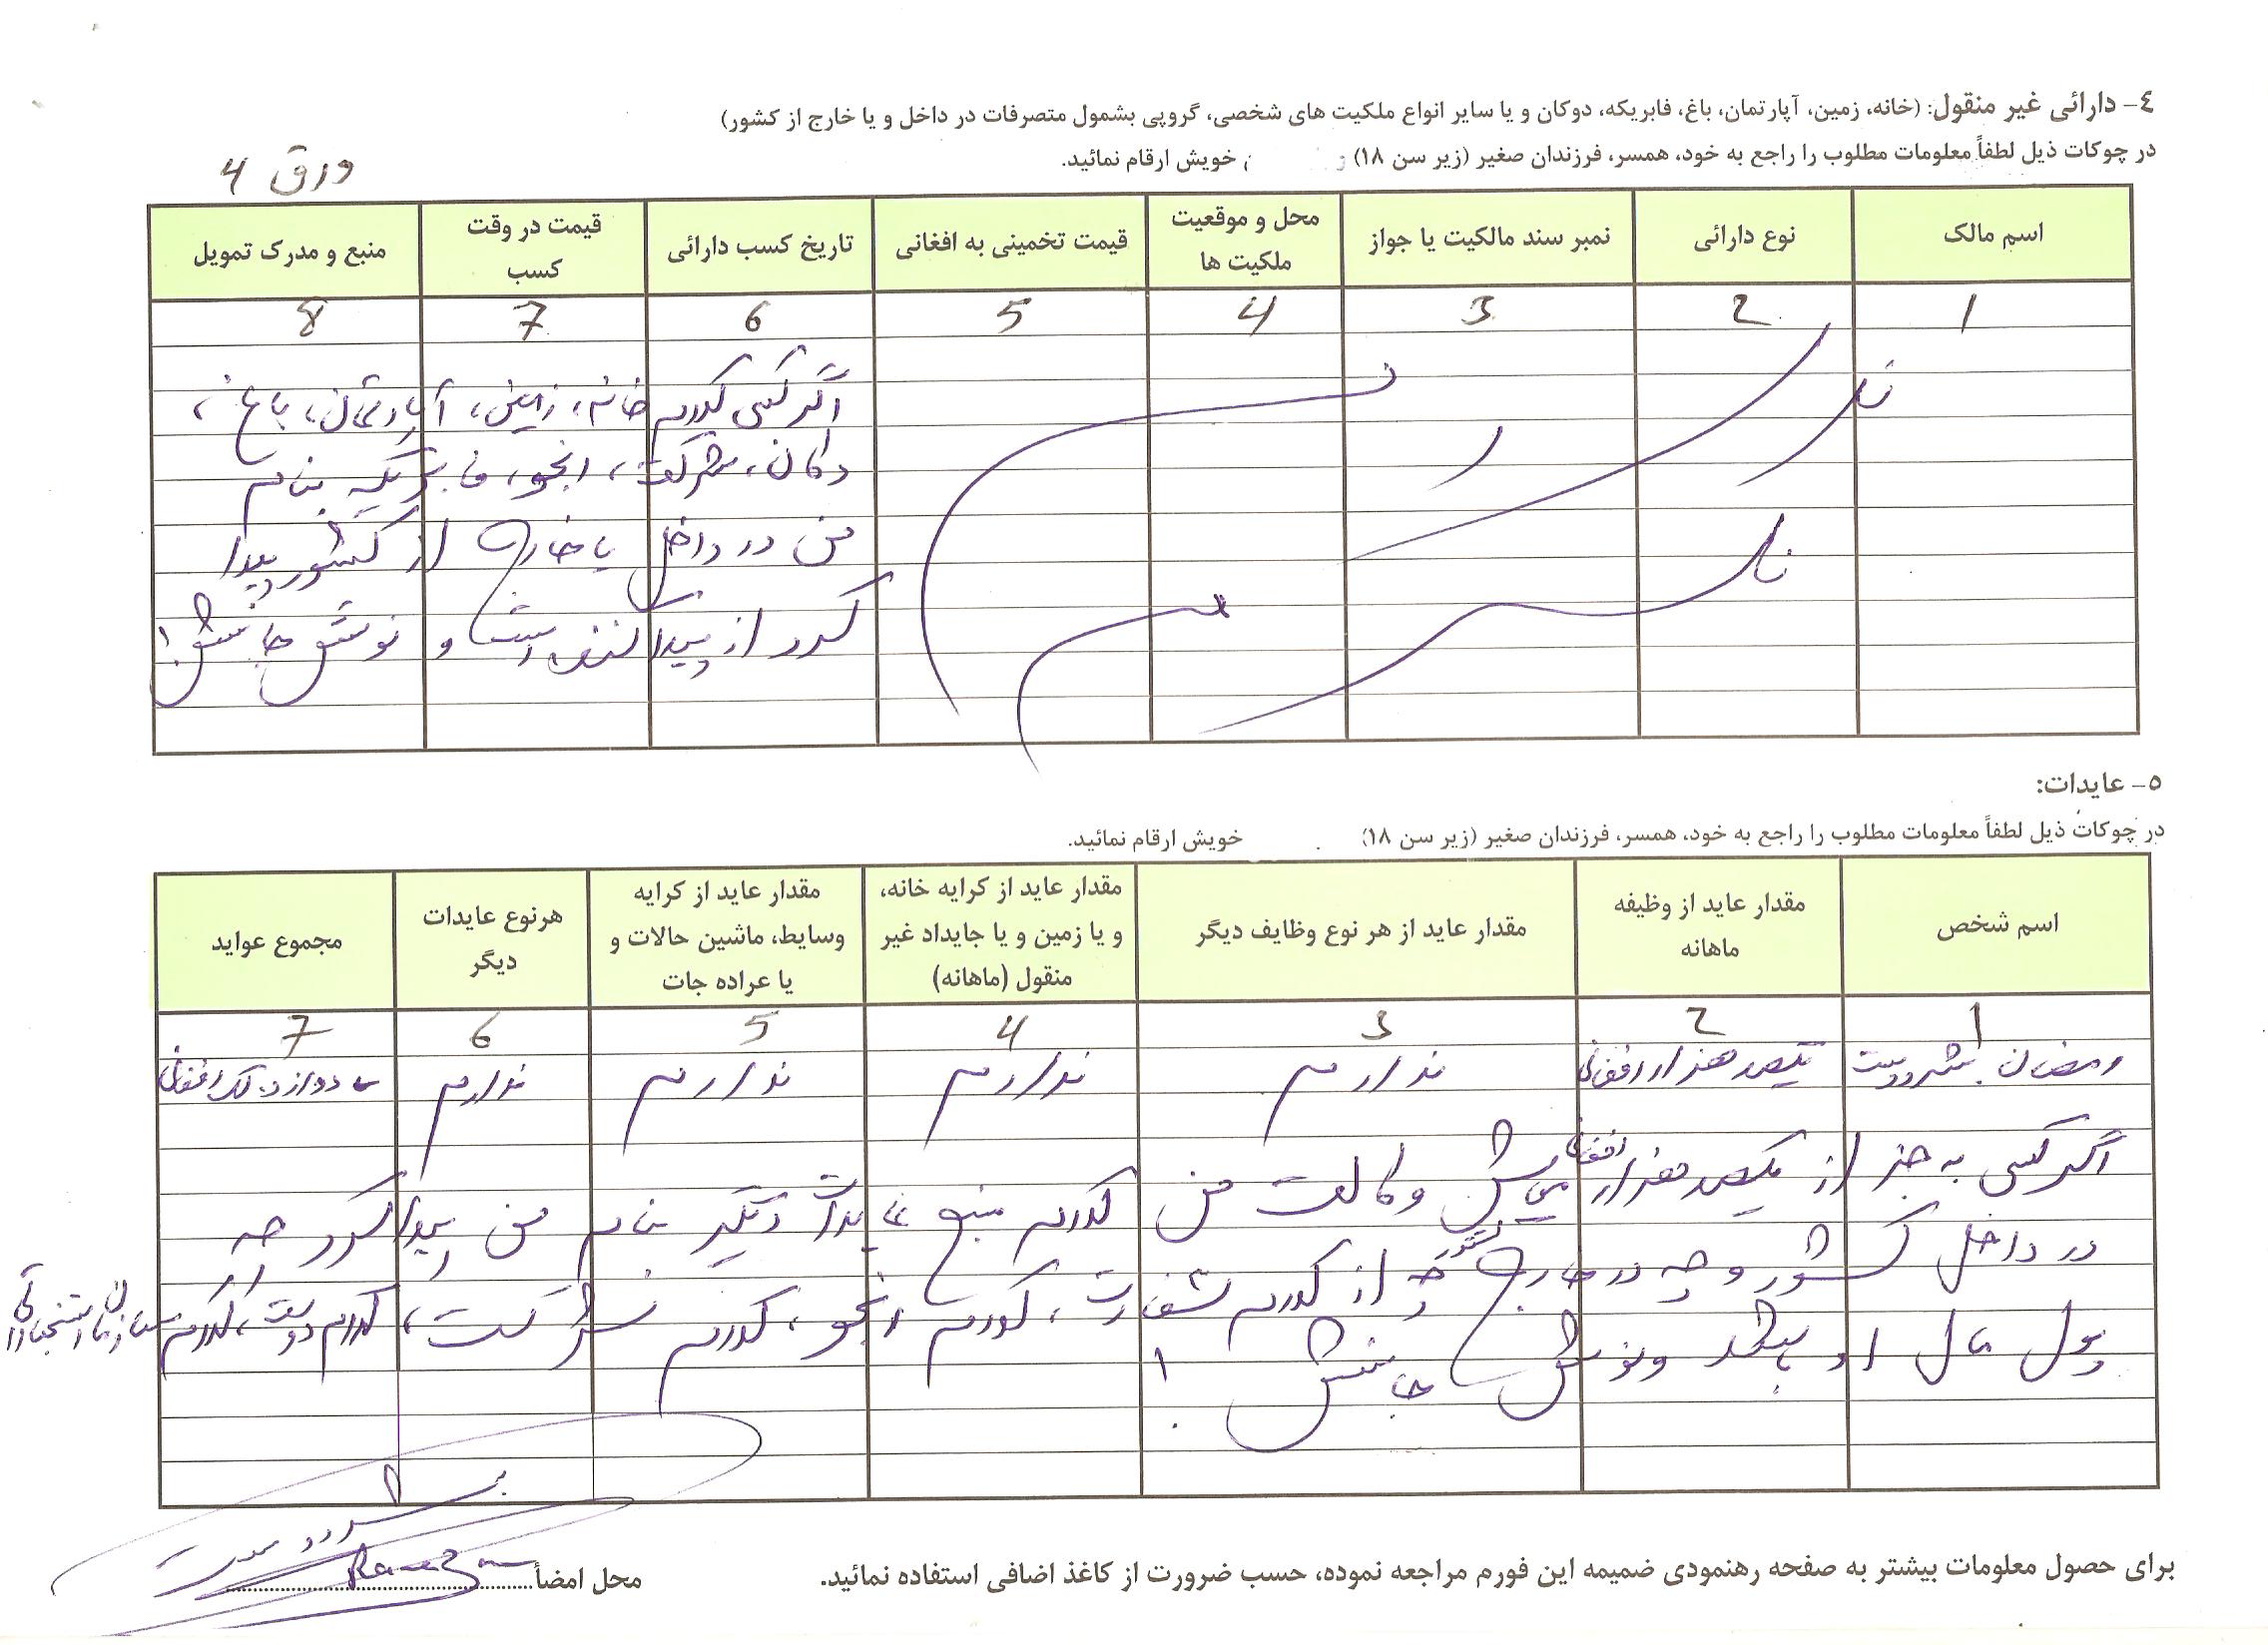 ٤- دارائی غیر منقول: (خانه، زمین، آپارتمان، باغ، فابریکه، دوکان و یا سایر انواع ملکیت های شخصی، گروپی بشمول متصرفات در داخل و یا خارج از کشور)
در چوکات ذیل لطفاً معلومات مطلوب را راجع به خود، همسر، فرزندان صغیر (زیر سن ١٨) خویش ارقام نمائید.
ورق 4
اسم مالک نوع دارائی نمبر سند مالکیت یا جواز محل و موقعیت ملکیت ها قیمت تخمینی به افغانی تاریخ کسب دارائی قیمت در وقت کسب منبع و مدرک تمویل
1 2 3 4 5 6 7 8
ندارم
اگر کسی کدام خانه، زمین، آپارتمان، باغ،
دکان، شرکت، انجو، فابریکه بنام
من در داخل یا خارج از کشور پیدا
کرد از پیدا کننده است و نوش جانش!
٥- عایدات:
در چوکات ذیل لطفاً معلومات مطلوب را راجع به خود، همسر، فرزندان صغیر (زیر سن ١٨) خویش ارقام نمائید.
اسم شخص مقدار عاید از وظیفه ماهانه مقدار عاید از هر نوع وظایف دیگر مقدار عاید از کرایه خانه، و یا زمین و یا جایداد غیر منقول (ماهانه) مقدار عاید از کرایه وسایط، ماشین حالات و یا عراده جات هرنوع عایدات دیگر مجموع عواید
1 2 3 4 5 6 7
رمضان بشردوست یکصد هزار افغانی ندارم ندارم ندارم ندارم دوازده لک افغانی
اگر کسی به جز از یکصد هزار افغانی معاش وکالت من کدام منبع عایدات دیگر بنام من پیدا کرد چه
در داخل کشور و چه در خارج کشور چه از کدام سفارت، کدام انجو، کدام شرکت، کدام دولت، کدام سازمان استخباراتی
پول مال او باشد و نوش جانش!
برای حصول معلومات بیشتر به صفحه رهنمودی ضمیمه این فورم مراجعه نموده، حسب ضرورت از کاغذ اضافی استفاده نمائید.
محل امضأ
بشردوست
Ramazan